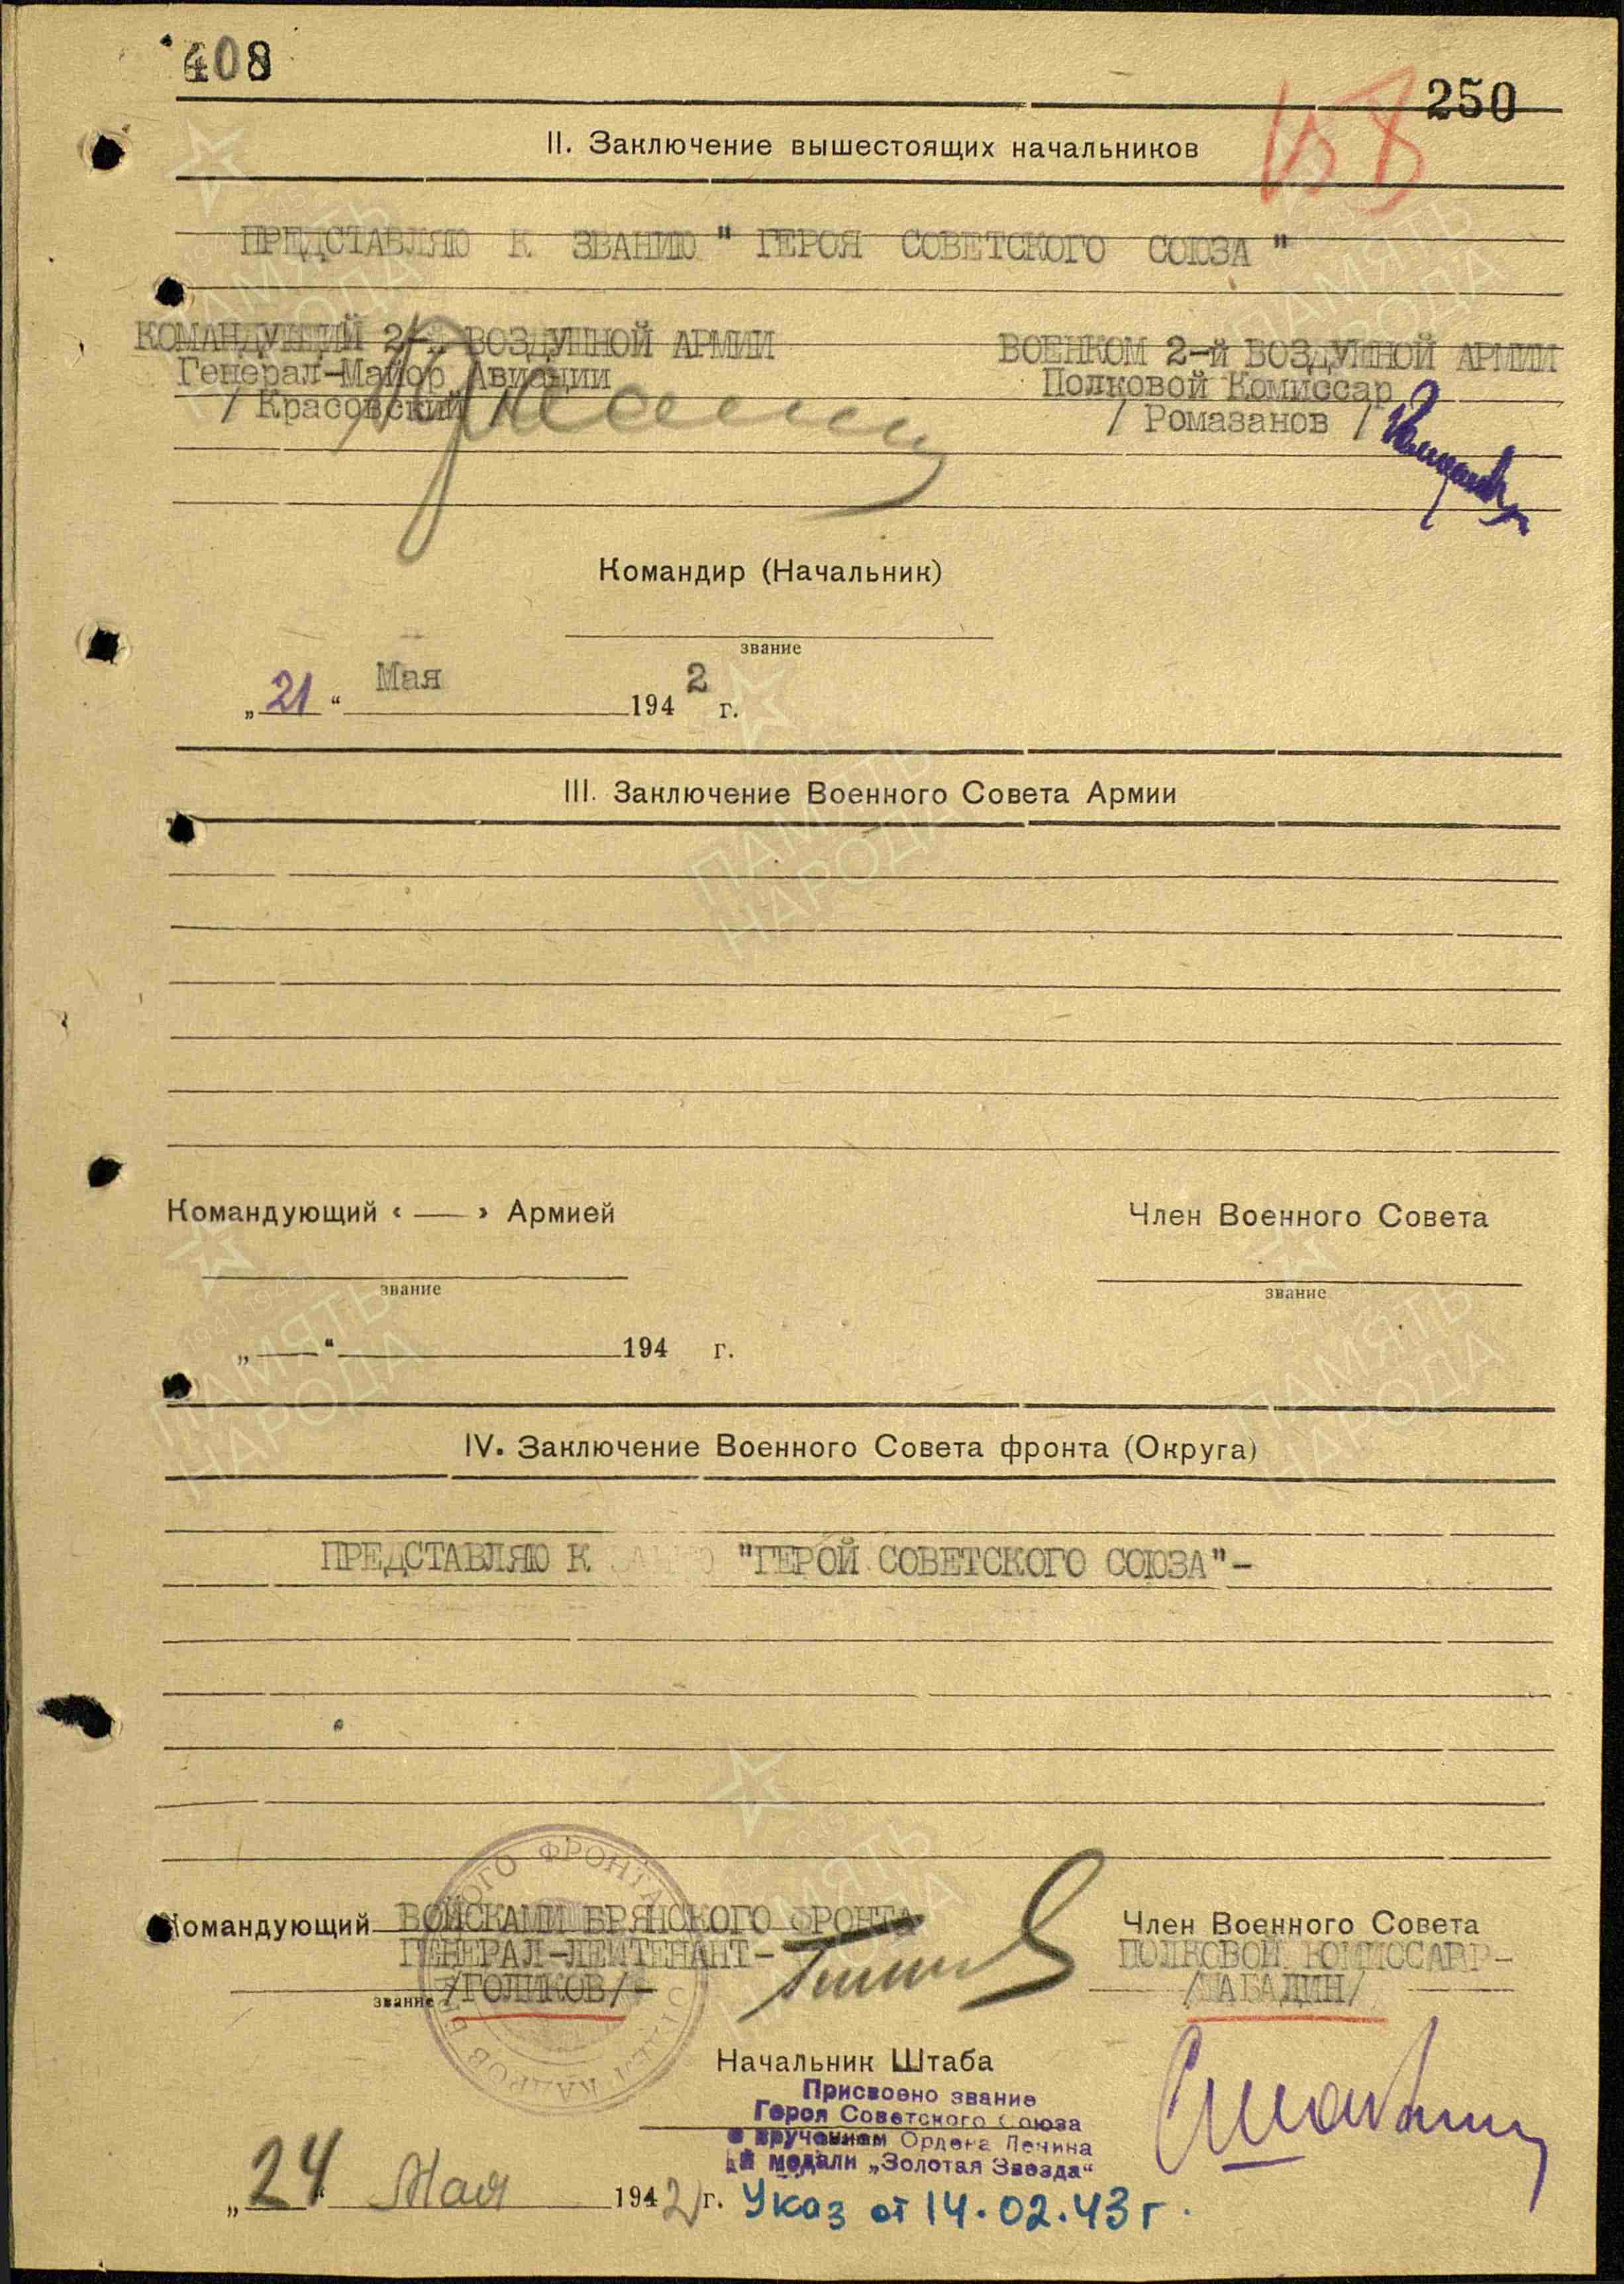 408
250
II. Заключение вышестоящих начальников
ПРЕДСТАВЛЯЮ К ЗВАНИЮ " ГЕРОЯ СОВЕТСКОГО СОЮЗА "
КОМАНДУЮЩИЙ 2-й ВОЗДУШНОЙ АРМИИ
Генерал-Майор Авиации
/ Красовский
ВОЕНКОМ 2-й ВОЗДУШНОЙ АРМИИ
Полковой Комиссар
/ Ромазанов /
Командир (Начальник)
звание
„21“ Мая 1942 г.
III. Заключение Военного Совета Армии
Командующий « — » Армией
Член Военного Совета
звание
звание
„ — “ 194 г.
IV. Заключение Военного Совета фронта (Округа)
ПРЕДСТАВЛЯЮ К "ГЕРОЙ СОВЕТСКОГО СОЮЗА"-
Командующий ВОЙСКАМИ БРЯНСКОГО ФРОНТА
ГЕНЕРАЛ-ЛЕЙТЕНАНТ-
звание /ГОЛИКОВ/-
Член Военного Совета
ПОЛКОВОЙ КОМИССАР-
/ШАБАЛИН/
Начальник Штаба
Присвоено звание
Героя Советского Союза
с вручением Ордена Ленина
и медали „Золотая Звезда“
„24“ Мая 1942 г. Указ от 14.02.43 г.
ПАМЯТЬ
НАРОДА